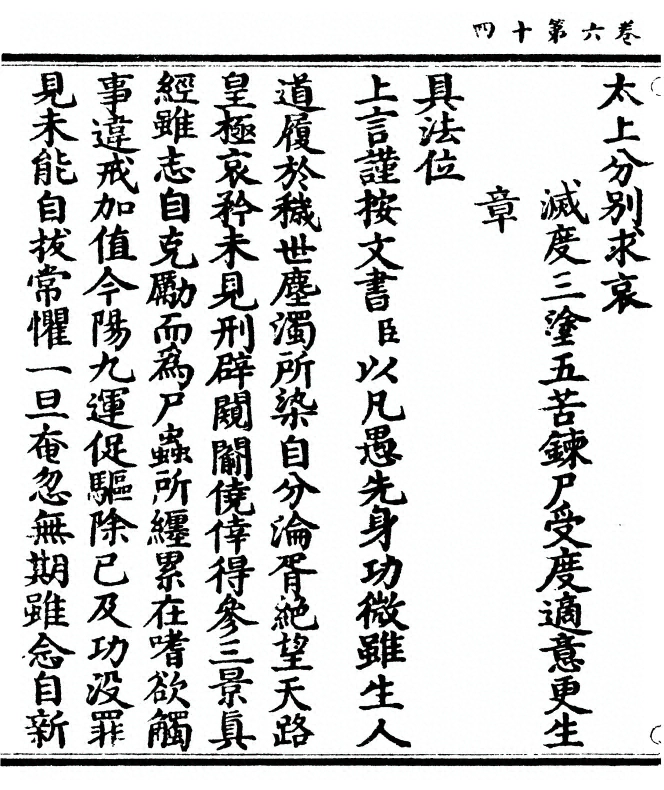 卷六第十四
太上分別求哀
滅度三塗五苦鍊尸受度適意更生
章
具法位
上言謹按文書臣以凡愚先身功微雖生人
道履於穢世塵濁所染自分淪胥絶望天路
皇極哀矜未見刑辟闚𨵦僥倖得參三景真
經雖志自克勵而為尸蟲所纏累在嗜欲觸
事違戒加值今陽九運促驅除已及功没罪
見未能自拔常懼一旦奄忽無期雖念自新